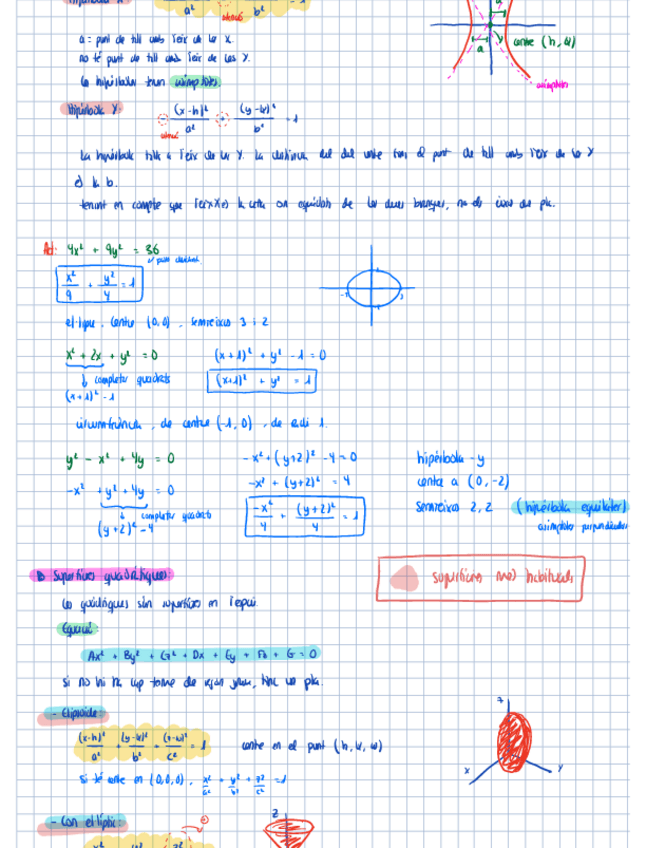 a²   b²
a = punt de tall amb l'eix de les X.
no té punt de tall amb l'eix de les Y.
centre (h, k)
a
les hipèrboles tenen asímptotes.
asímptotes
Hipèrbola Y: - (x-h)²/a² + (y-k)²/b² = 1
La hipèrbola talla a l'eix de les Y. La distància del centre el punt de tall amb l'eix de les Y
és la b.
tenint en compte que l'eix X és la recta on equidista de les dues branques, no és eix de
Ad: 4x² + 9y² = 36
x²/9 + y²/4 = 1
el·lipse. Centre (0,0), semieixos 3 i 2
x² + 2x + y² = 0   (x+1)² + y² - 1 = 0
completar quadrats
(x+1)² - 1   (x+1)² + y² = 1
circumferència, de centre (-1, 0), de radi 1.
y² - x² + 4y = 0   -x² + (y+2)² - 4 = 0   hipèrbola - y
-x² + y² + 4y = 0   -x² + (y+2)² = 4   centre a (0, -2)
completar quadrats   -x²/4 + (y+2)²/4 = 1   semieixos 2, 2   (hipèrbola equilàtera)
(y+2)² - 4   asímptotes perpendiculars
Superfícies quadràtiques:
superfícies més habituals
Les quàdriques són superfícies en l'espai.
Equació:
Ax² + By² + Cz² + Dx + Ey + Fz + G = 0
si no hi ha cap terme de segon grau, tinc un pla.
- El·lipsoide:
(x-h)²/a² + (y-k)²/b² + (z-w)²/c² = 1   centre en el punt (h, k, w)
si té centre en (0,0,0), x²/a² + y²/b² + z²/c² = 1
z
x   y
- Con el·líptic:
z